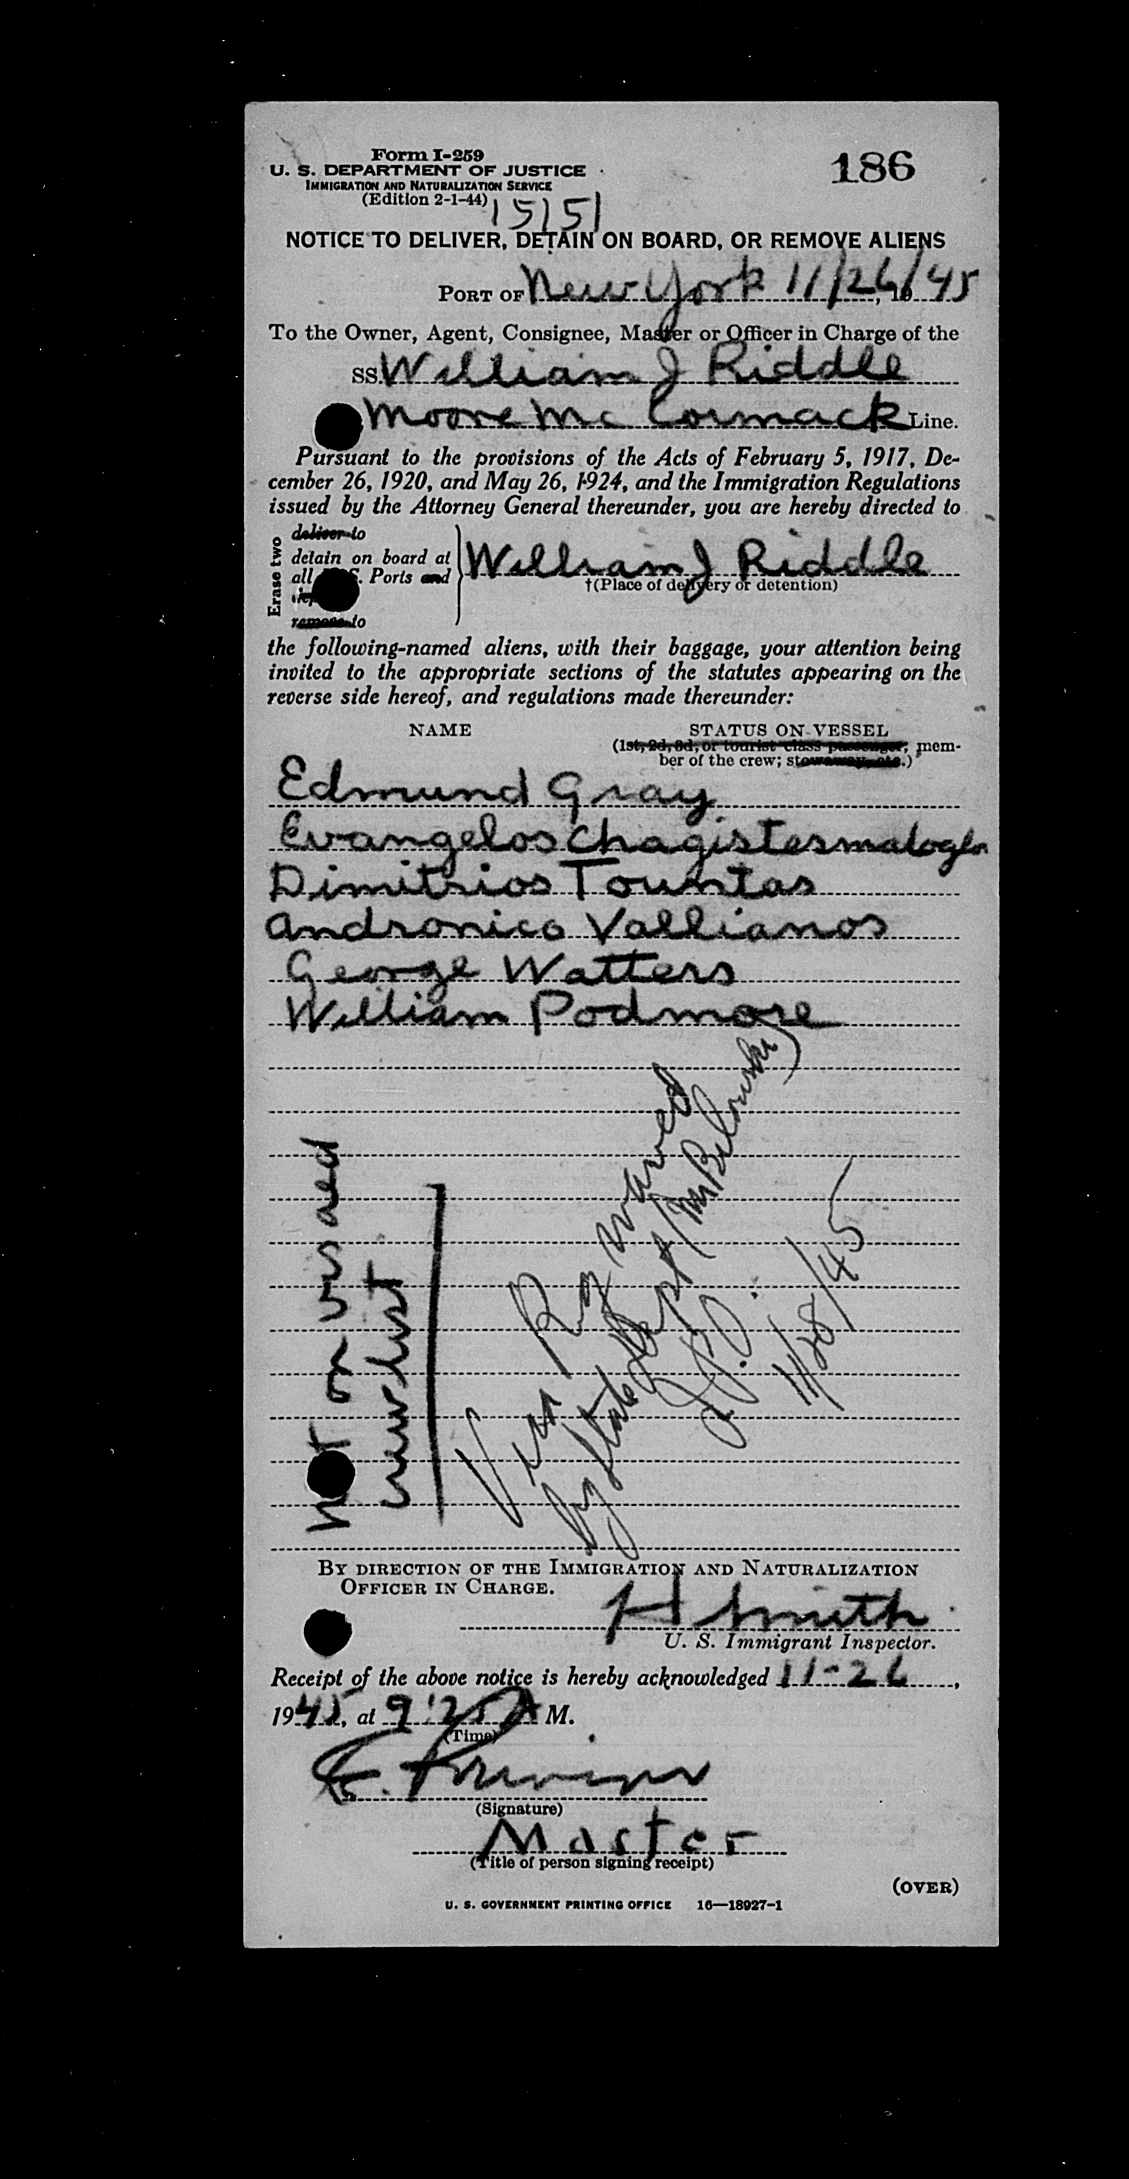 Form I-259
186
U. S. DEPARTMENT OF JUSTICE
IMMIGRATION AND NATURALIZATION SERVICE
(Edition 2-1-44)
15151
NOTICE TO DELIVER, DETAIN ON BOARD, OR REMOVE ALIENS
PORT OF New York 11/26/45, 19
To the Owner, Agent, Consignee, Master or Officer in Charge of the
SS. William J Riddle
Moore Mc Cormack Line.
Pursuant to the provisions of the Acts of February 5, 1917, De-
cember 26, 1920, and May 26, 1924, and the Immigration Regulations
issued by the Attorney General thereunder, you are hereby directed to
Erase two
deliver to
detain on board at William J Riddle
all U. S. Ports and
†(Place of delivery or detention)
remove to
the following-named aliens, with their baggage, your attention being
invited to the appropriate sections of the statutes appearing on the
reverse side hereof, and regulations made thereunder:
NAME STATUS ON VESSEL
(1st, 2d, 3d, or tourist class passenger; mem-
ber of the crew; stowaway, etc.)
Edmund Gray
Evangelos
Dimitrios Tountas
Andronico Vallianos
George Watters
William Podmore
Not on visaed
crew list
Visa Rq waived
by State Dept (Mr
11/28/45
BY DIRECTION OF THE IMMIGRATION AND NATURALIZATION
OFFICER IN CHARGE.
H Smith
U. S. Immigrant Inspector.
Receipt of the above notice is hereby acknowledged 11-26,
1945, at 9:25 A M.
(Time)
(Signature)
Master
(Title of person signing receipt)
(OVER)
U. S. GOVERNMENT PRINTING OFFICE 16—18927-1